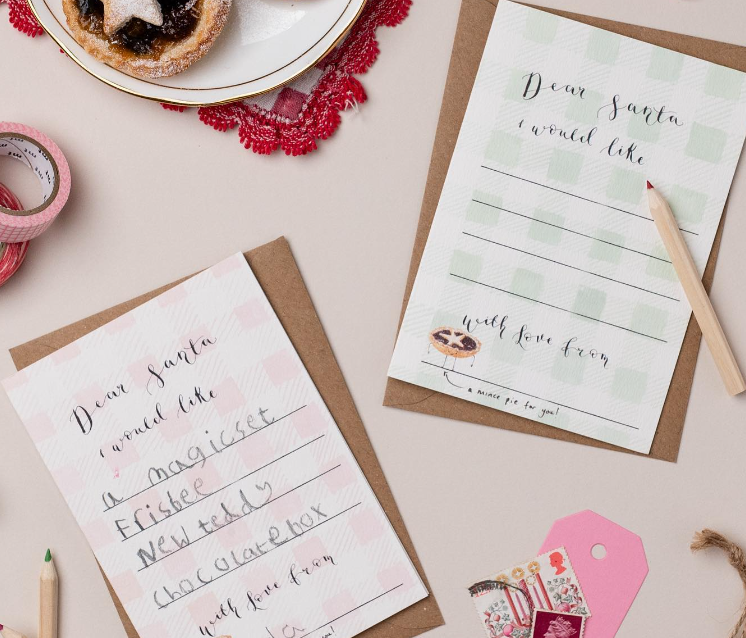 Dear Santa
i would like
with love from
a mince pie for you!
Dear Santa
i would like
a magicset
Frisbee
New teddy
chocolatebox
with love from